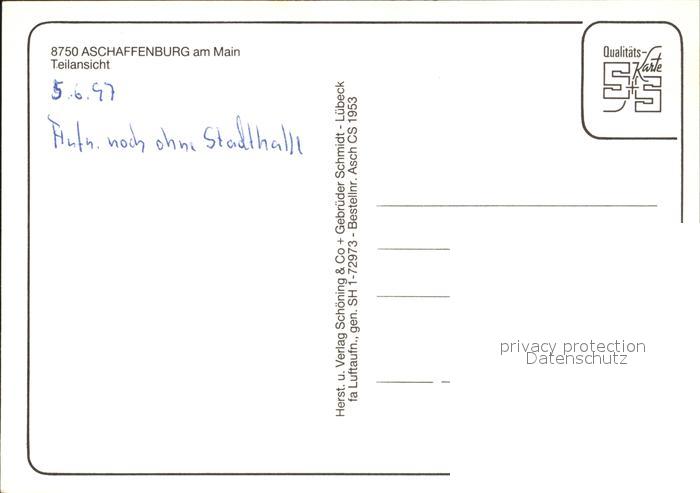 8750 ASCHAFFENBURG am Main
Teilansicht
5.6.97
Aufn. noch ohne Stadthalle
Herst. u. Verlag Schöning & Co + Gebrüder Schmidt - Lübeck
fa Luftaufn., gen. SH 1-72973 - Bestellnr. Asch CS 1953
Qualitäts-
Karte
S+S
privacy protection
Datenschutz